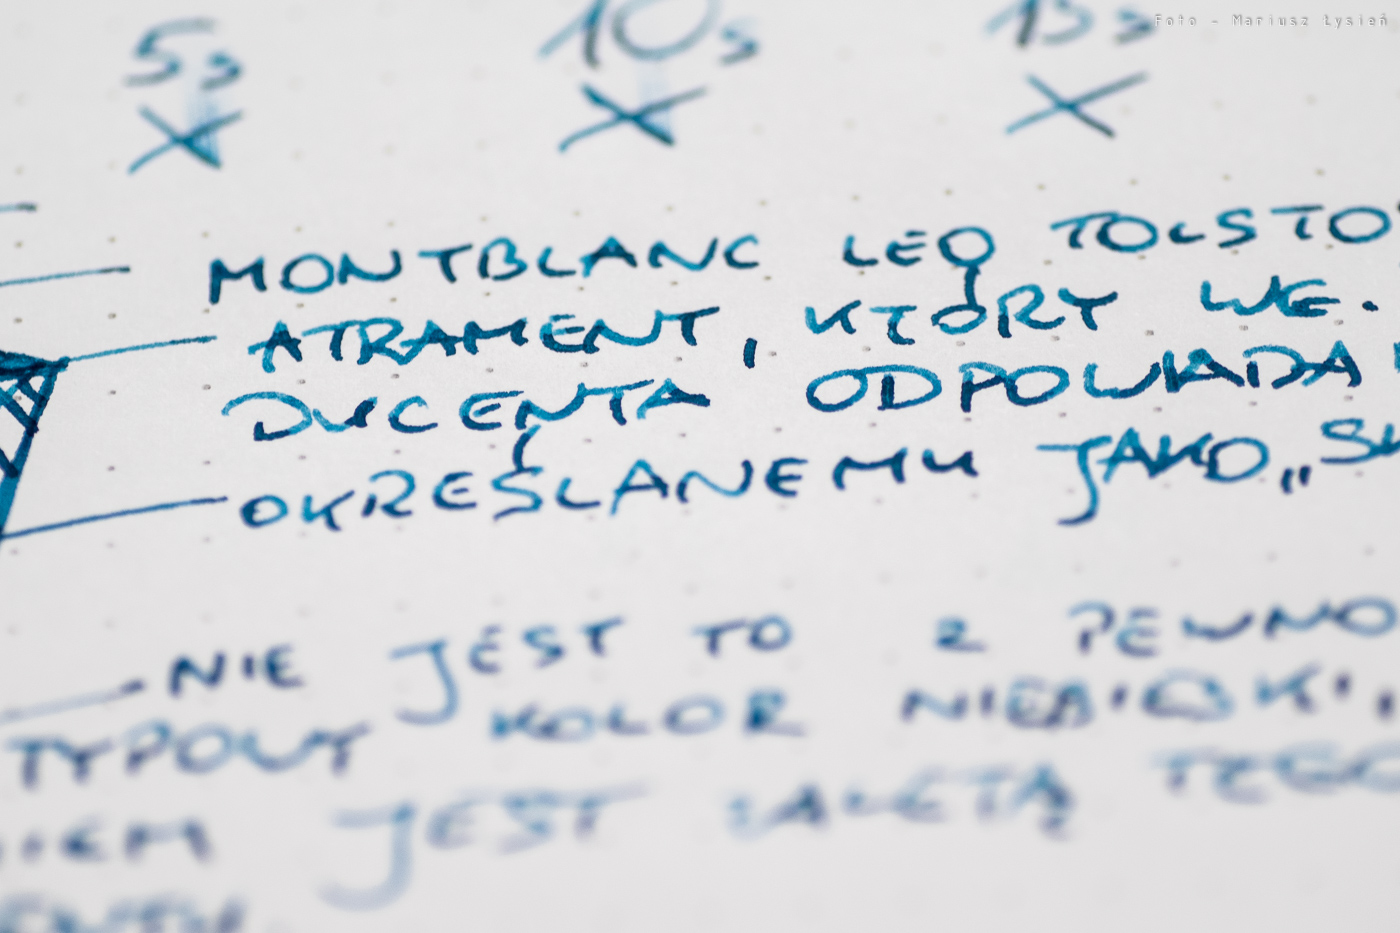 Foto - Mariusz Łysień
5s 10s 15s
MONTBLANC LEO TOLSTO
ATRAMENT, KTÓRY WE.
DUCENTA ODPOWIADA
OKREŚLANEMU JAKO „SK
NIE JEST TO Z PEWNO
TYPOWY KOLOR NIEBIESKI,
NIEM JEST ZALETĄ TEGO